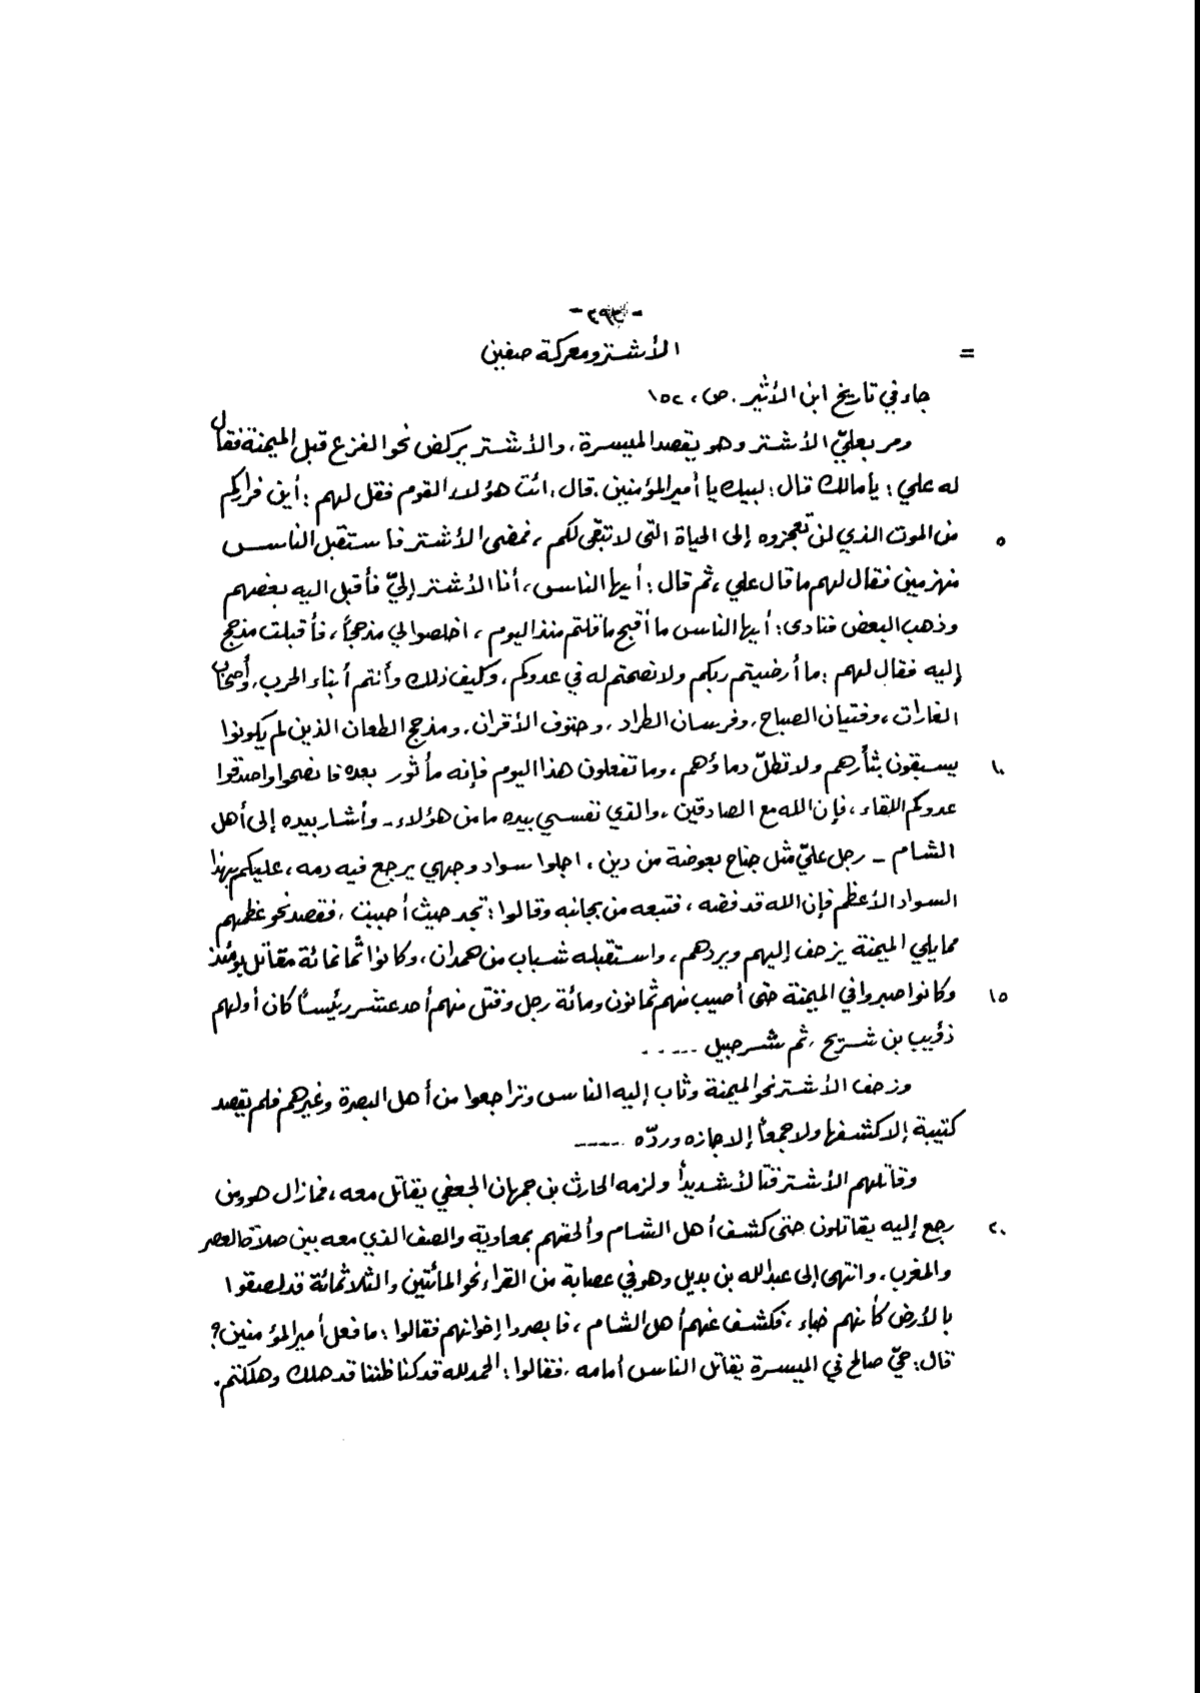 -٢٩٣-
= الأشتر ومعركة صفين
جاء في تاريخ ابن الأثير . ص، ١٥٢
ومر بعليّ الأشتر وهو يقصد الميسرة، والأشتر يركض نحو الفزع قبل الميمنة فقال
له علي : يا مالك قال : لبيك يا أمير المؤمنين . قال . ائت هؤلاء القوم فقل لهم : أين فراركم
٥ من الموت الذي لن تعجزوه إلى الحياة التي لا تبقى لكم ، فمضى الأشتر فاستقبل الناس
منهزمين فقال لهم ما قال علي ، ثم قال : أيها الناس ، أنا الأشتر إليّ فأقبل اليه بعضهم
وذهب البعض فنادى : أيها الناس ما أقبح ما قاتلتم منذ اليوم ، اخلصوا لي مذحجاً ، فأقبلت مذحج
إليه فقال لهم : ما أرضيتم ربكم ولا نصحتم له في عدوكم ، وكيف ذلك وأنتم أبناء الحرب ، وأصحاب
الغارات ، وفتيان الصباح ، وفرسان الطراد ، وحتوف الأقران ، ومذحج الطعان الذين لم يكونوا
١٠ يسبقون بثأرهم ولا تطلّ دماؤهم ، وما تفعلون هذا اليوم فإنه مأثور بعده فانصحوا واصدقوا
عدوكم اللقاء ، فإن الله مع الصادقين ، والذي نفسي بيده ما من هؤلاء - وأشار بيده إلى أهل
الشام - رجل عليّ مثل جناح بعوضة من دين ، اجلوا سواد وجهي يرجع فيه دمه ، عليكم بهذا
السواد الأعظم فإن الله قد فضه ، فتبعه من بجانبه وقالوا : تجد حيث أحببت ، فقصد نحو عظمهم
مما يلي الميمنة يزحف إليهم ويردهم ، واستقبله شباب من همدان ، وكانوا ثمانمائة مقاتل يومئذ
١٥ وكانوا صبروا في الميمنة حتى أصيب منهم ثمانون ومائة رجل وقتل منهم أحد عشر رئيساً كان أولهم
ذؤيب بن شريح ، ثم شرحبيل -----
وزحف الأشتر نحو الميمنة وثاب إليه الناس وتراجعوا من أهل البصرة وغيرهم فلم يقصد
كتيبة إلا كشفها ولا جمعاً إلا جازه وردّه -----
وقاتلهم الأشتر قتالاً شديداً ولزمه الحارث بن جمهان الجعفي يقاتل معه ، فما زال هو ومن
٢٠ رجع إليه يقاتلون حتى كشف أهل الشام وألحقهم بمعاوية والصف الذي معه بين صلاة العصر
والمغرب ، وانتهى إلى عبد الله بن بديل وهو في عصابة من القراء نحو المائتين والثلاثمائة قد لصقوا
بالأرض كأنهم خباء ، فكشف عنهم أهل الشام ، فابصروا إخوانهم فقالوا : ما فعل أمير المؤمنين ؟
قال : حيّ صالح في الميسرة يقاتل الناس أمامه ، فقالوا : الحمد لله قد كنا ظننا قد هلك وهلكتم .